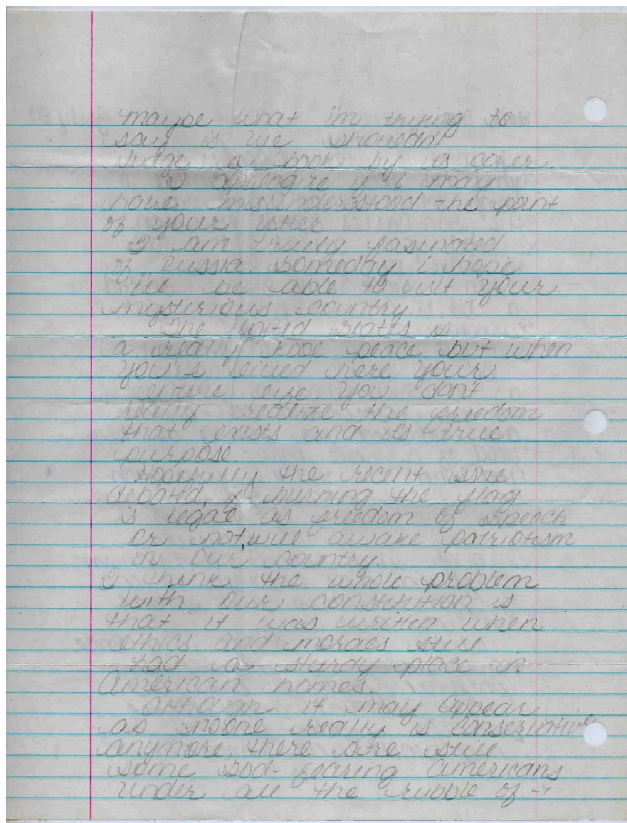 maybe what im trying to
say is we shouldnt
judge a book by its cover.
I apologize if I may
have misunderstood the point
of your letter
I am truely fasinated
of Russia. Someday i hope
be able to visit your
mysterious country
The United States is
a really peace, but when
you've lived here your
entire life you don't
really realize the freedom
that exists and its true
purpose.
Hopefully the recent issue
debated, if burning the flag
is legal as freedom of speech
or not, will awake patriotism
in our country.
I think the whole problem
with our constitution is
that it was written when
ethics and morals still
had a sturdy place in
American homes.
although it may appear
as noone really is conservative
anymore, there are still
some God-fearing Americans
under all the rubble of -